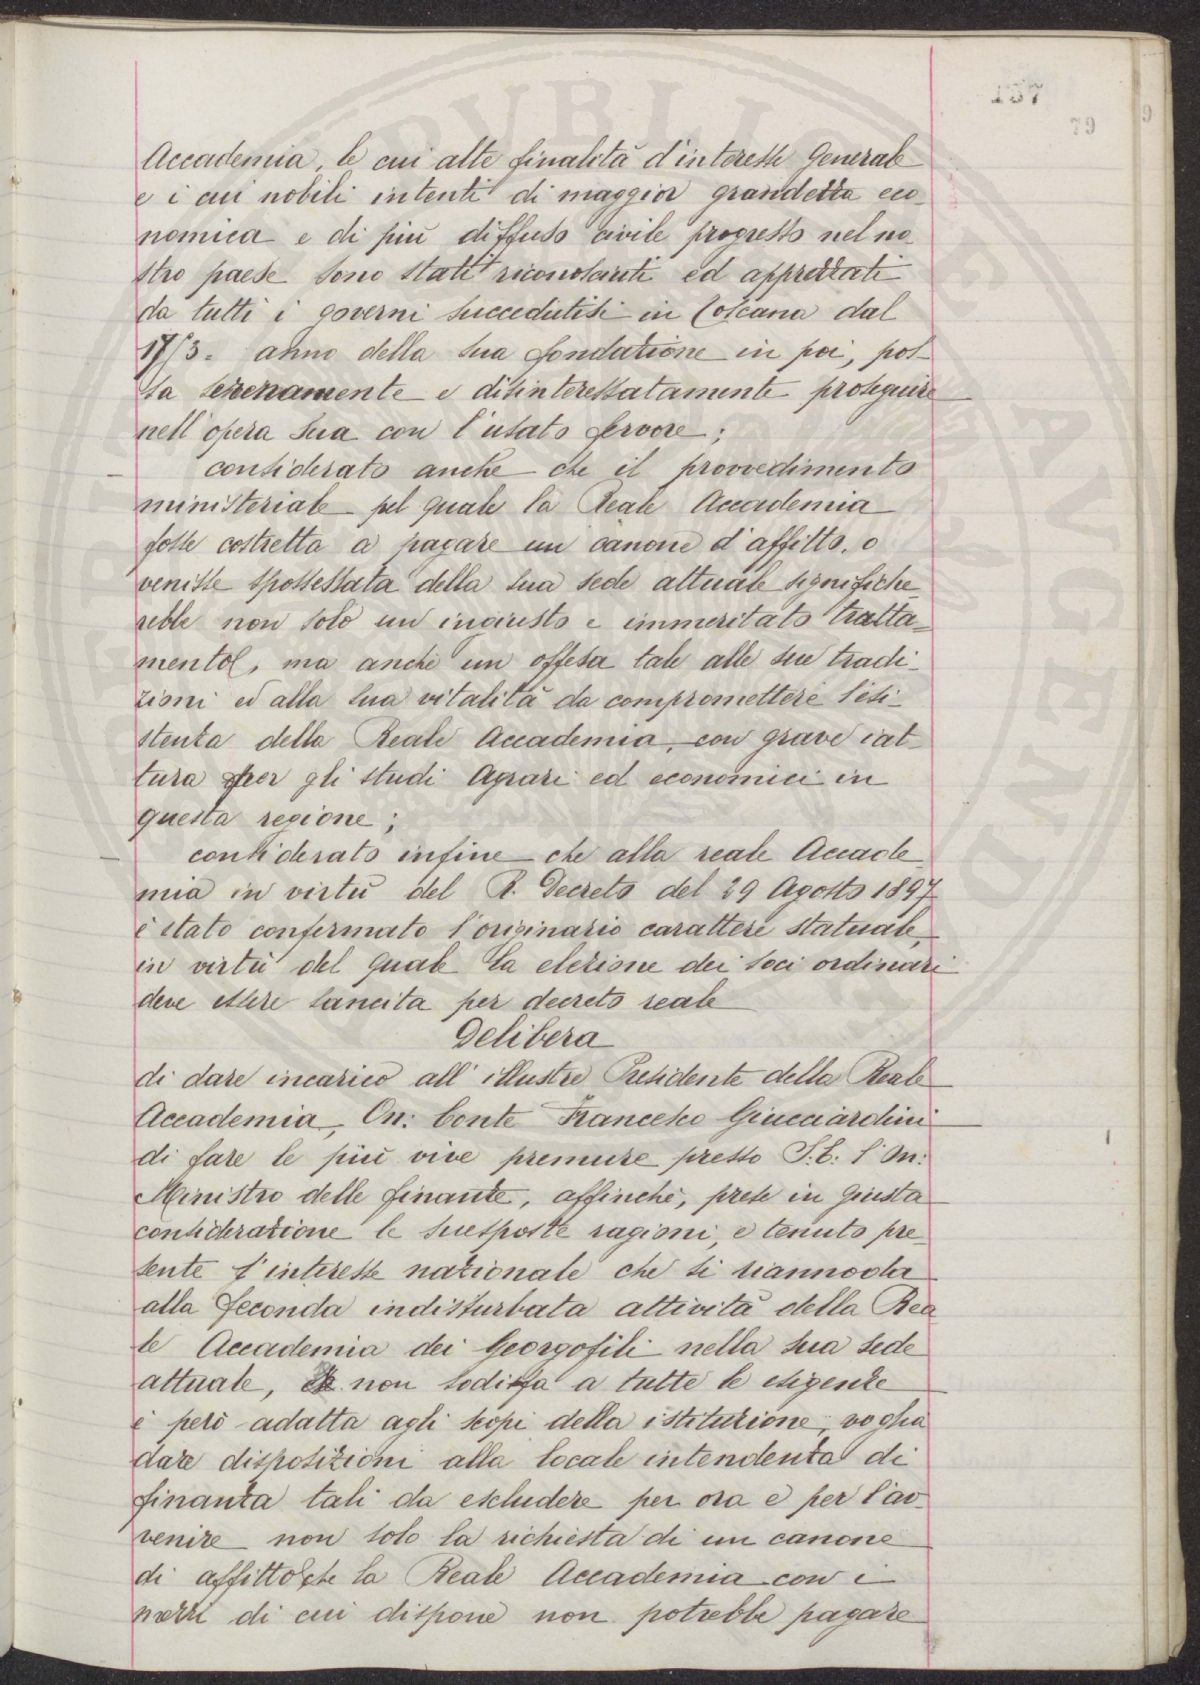 Accademia, le cui alte finalità d'interesse Generale
e i cui nobili intenti di maggior grandezza eco-
nomica e di più diffuso civile progresso nel no-
stro paese sono stati riconosciuti ed apprezzati
da tutti i governi succedutisi in Toscana dal
1753. anno della sua fondazione in poi, pos-
sa serenamente e disinteressatamente proseguire
nell'opera sua con l'usato fervore;
considerato anche che il provvedimento
ministeriale pel quale la Reale Accademia
fosse costretta a pagare un canone d'affitto, o
venisse spossessata della sua sede attuale significhe-
rebbe non solo un ingiusto e immeritato tratta-
mento, ma anche un offesa tale alle sue tradi-
zioni ed alla sua vitalità da compromettere l'esi-
stenza della Reale Accademia, con grave iat-
tura per gli studi Agrari ed economici in
questa regione;
considerato infine che alla reale Accade
mia in virtù del R. Decreto del 29 Agosto 1897
è stato confermato l'originario carattere statuale,
in virtù del quale la elezione dei soci ordinari
deve essere sancita per decreto reale
Delibera
di dare incarico all'illustre Presidente della Reale
Accademia, On: Conte Francesco Guicciardini
di fare le più vive premure presso S.E: l'On:
Ministro delle finanze, affinchè, prese in giusta
considerazione le suesposte ragioni, e tenuto pre-
sente l'interesse nazionale che si riannoda
alla feconda indisturbata attività della Rea
le Accademia dei Georgofili nella sua sede
attuale, non sodisfa a tutte le esigenze
è però adatta agli scopi della istituzione, voglia
dare disposizioni alla locale intendenza di
finanza tali da escludere per ora e per l'av-
venire non solo la richiesta di un canone
di affitto che la Reale Accademia con i
mezzi di cui dispone non potrebbe pagare